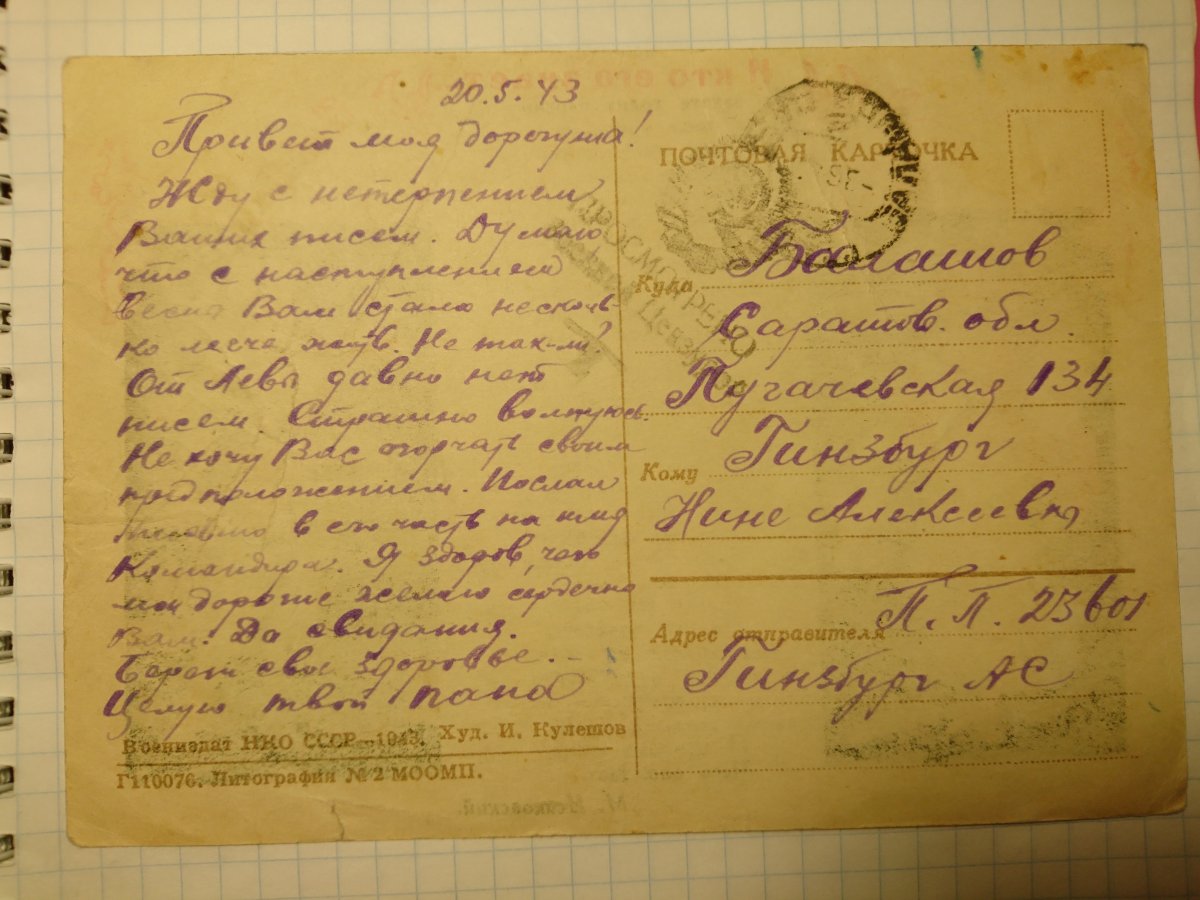 20.5.43
Привет моя дорогуша!
Жду с нетерпением
Ваших писем. Думаю
что с наступлением
весны Вам стало несколь
ко легче жить. Не так-ли?
От Левы давно нет
писем. Страшно волнуюсь.
Не хочу Вас огорчать своим
предположением. Послал
письмо в его часть на имя
Командира. Я здоров, чего
мои дорогие желаю сердечно
Вам. До свидания.
Береги свое здоровье.
Целую твой папа
Воениздат НКО СССР—1943. Худ. И. Кулешов
Г110076. Литография № 2 МООМП.
ПОЧТОВАЯ КАРТОЧКА
ПРОСМОТРЕНО
Военной Цензурой
Куда Балашов
Саратов. обл.
Пугачевская 134
Кому Гинзбург
Нине Алексеевне
Адрес отправителя П.П. 23601
Гинзбург АС